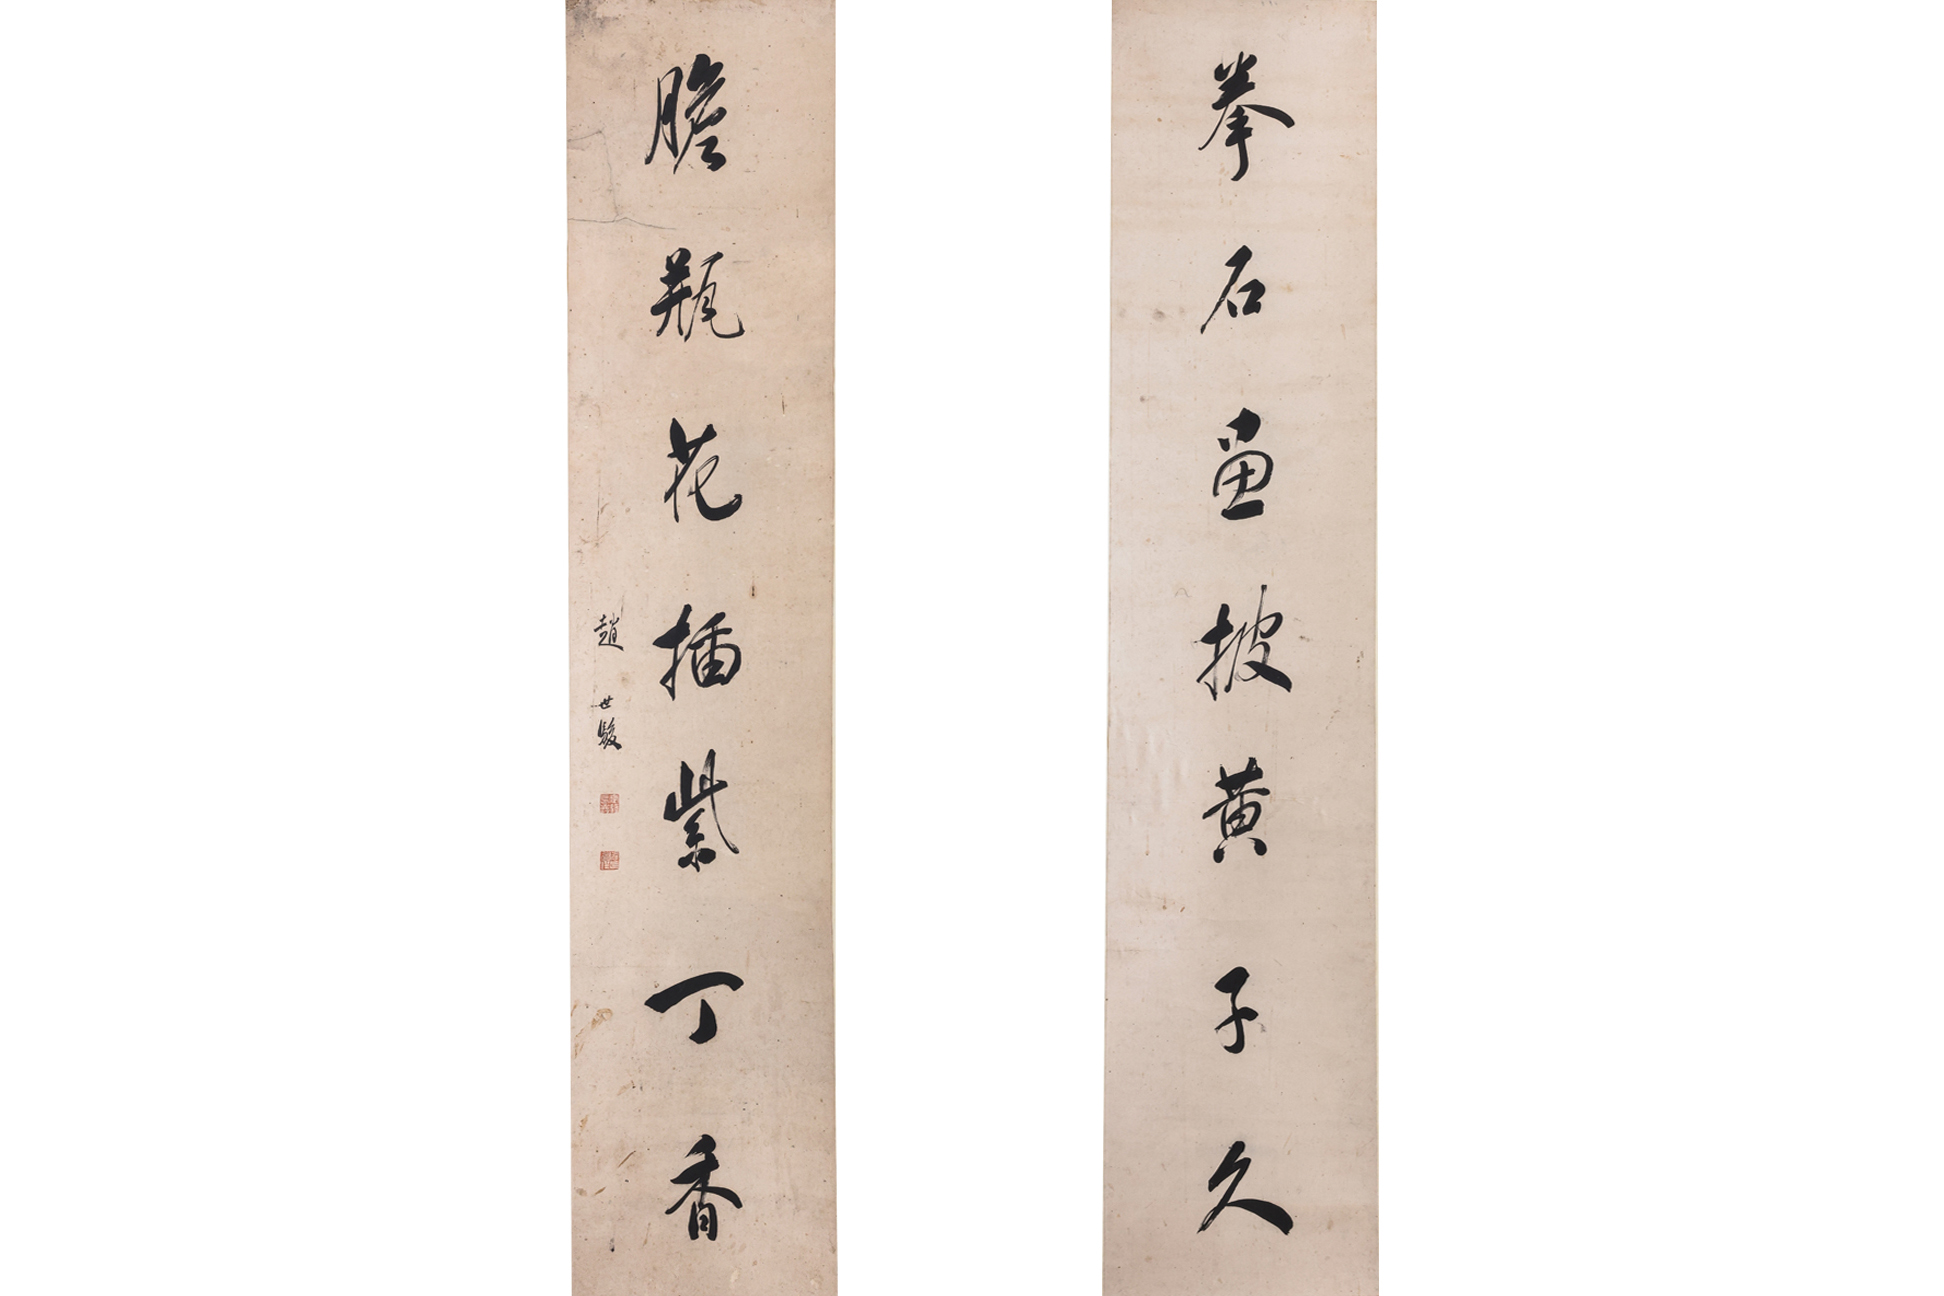 拳石畫披黃子久
膽瓶花插紫丁香
趙世駿